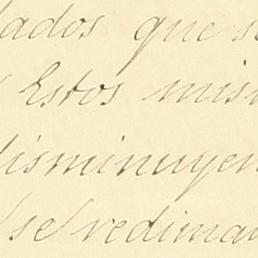 lados que s
Estos mis
disminuyen
se redima